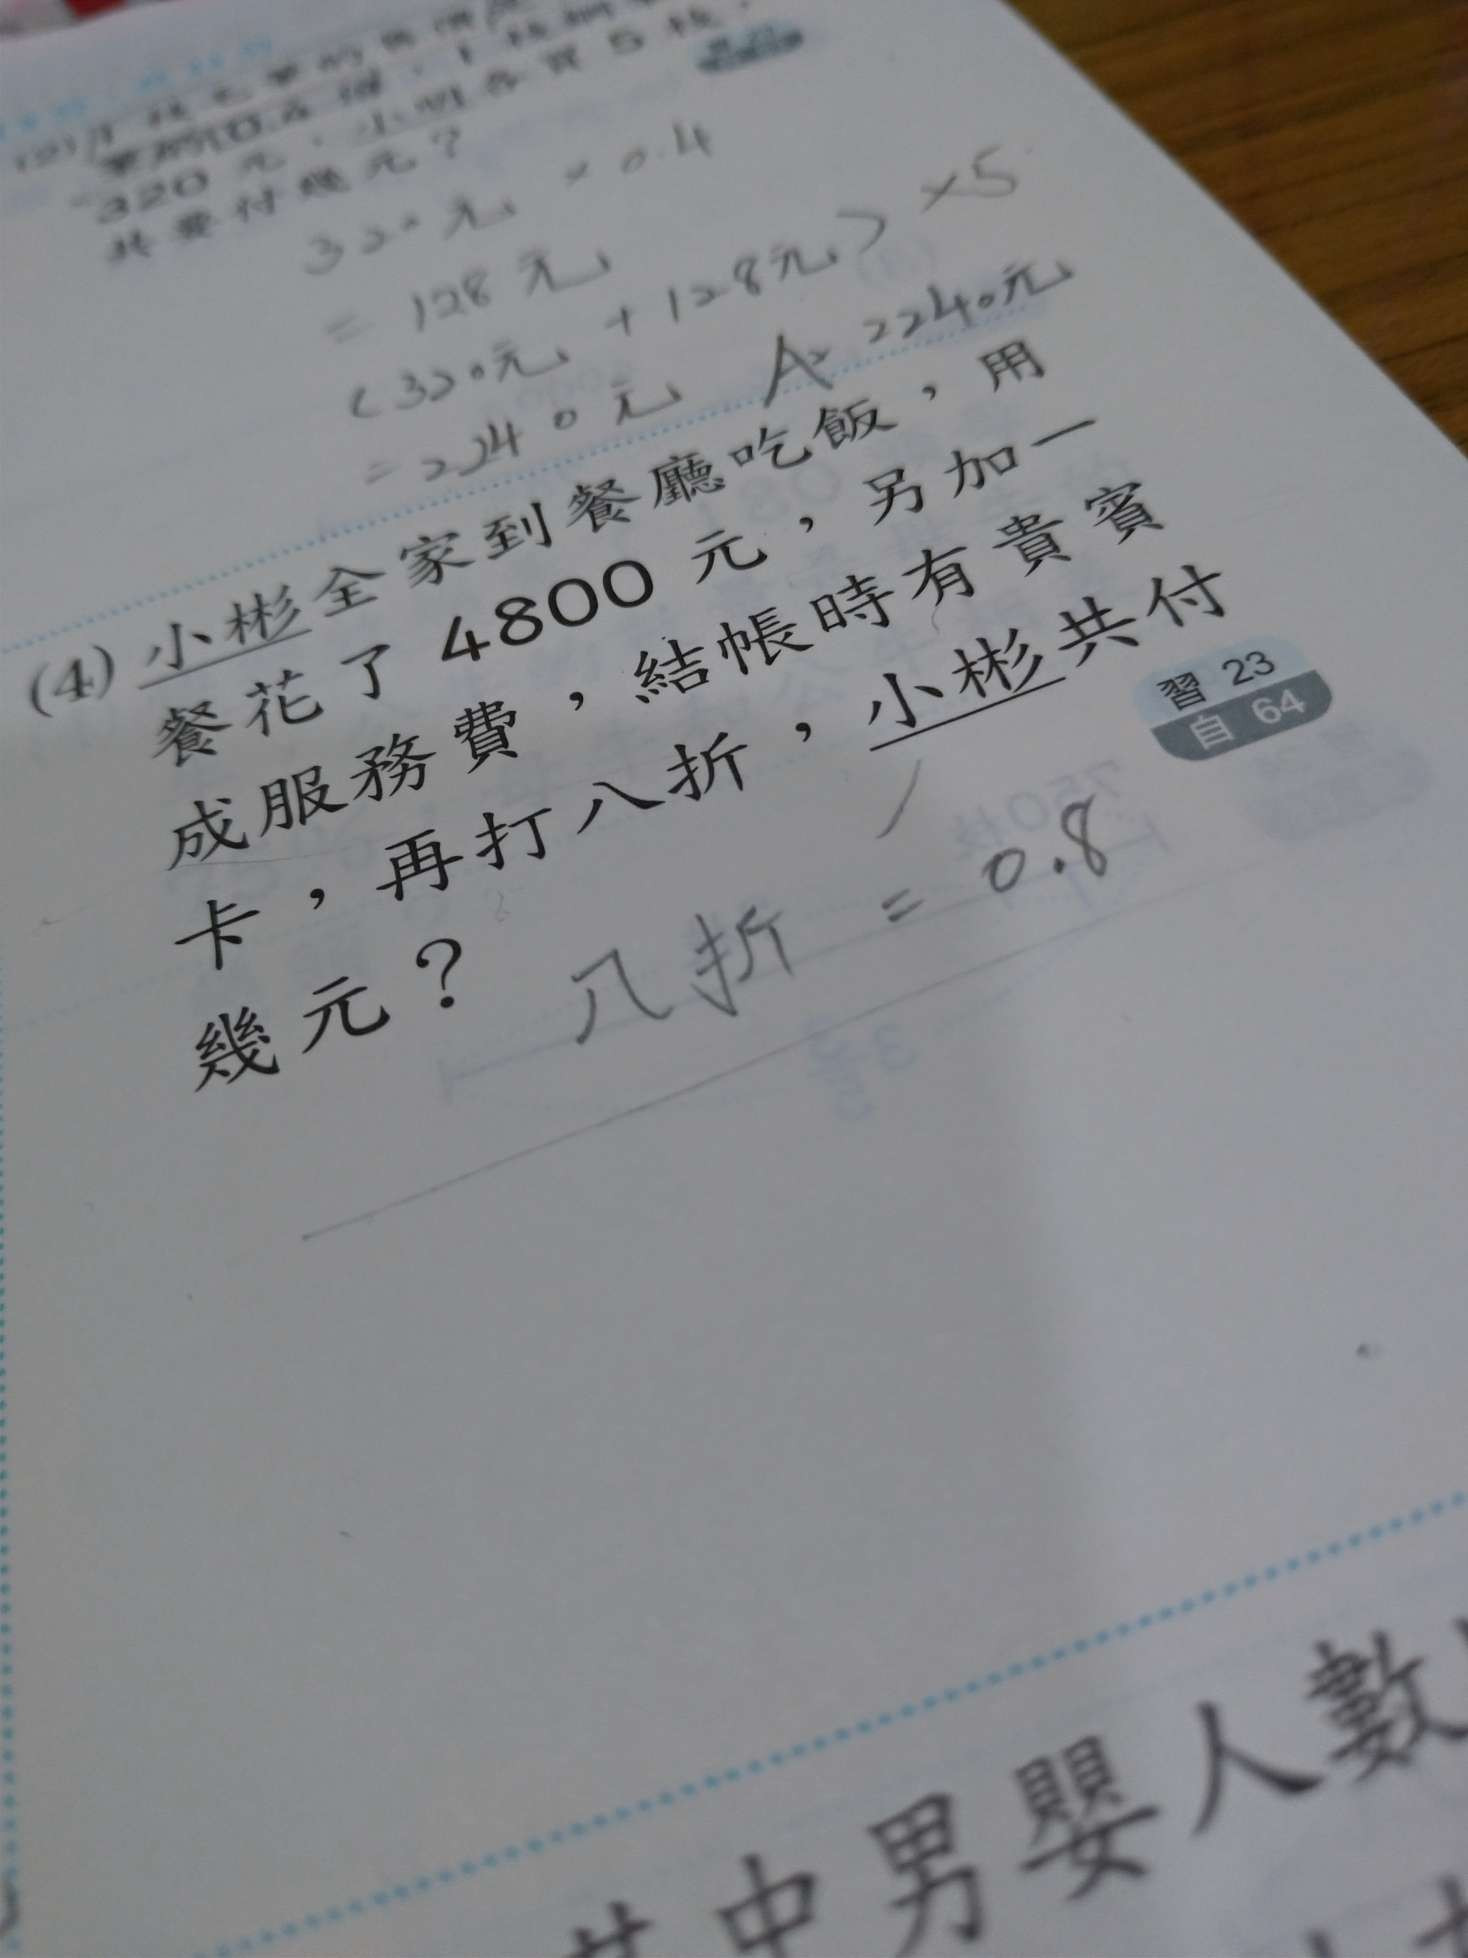 320 元，小明各買 5 枝，
共要付幾元？
320元 × 0.4
= 128元
(320元 + 128元) ×5
= 2240元 A: 2240元
(4) 小彬全家到餐廳吃飯，用
餐花了 4800 元，另加一
成服務費，結帳時有貴賓
卡，再打八折，小彬共付
幾元？
習 23
自 64
八折 = 0.8
其中男嬰人數